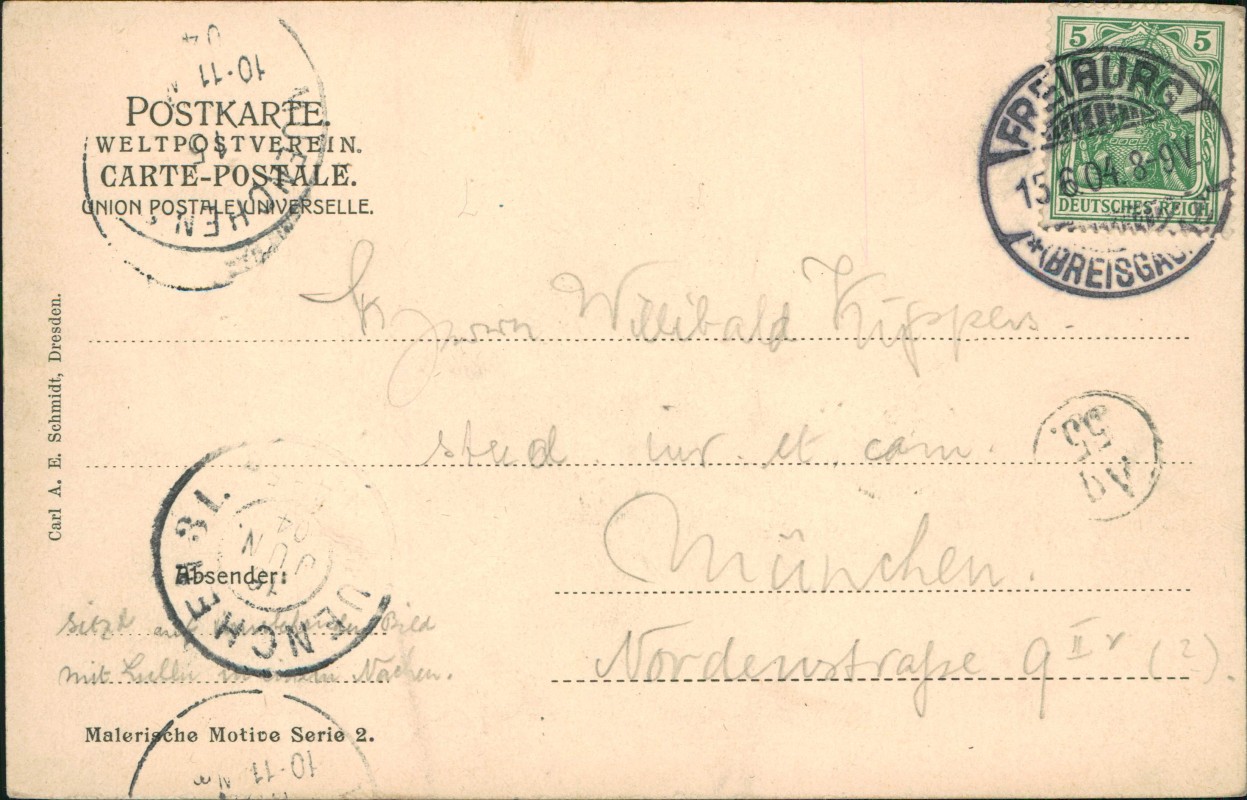 POSTKARTE.
WELTPOSTVEREIN.
CARTE-POSTALE.
UNION POSTALE UNIVERSELLE.
10-11
04
15
MUENCHEN
5 5
DEUTSCHES REICH
FREIBURG
15.6.04.8-9V.
*(BREISGAU)
Carl A. E. Schmidt, Dresden.
Herrn Willibald Küppers.
stud. iur. et. cam.
München.
Nordenstraße 9 II r (?).
55.
AQ
MUENCHEN 31.
JUN
04
Absender:
sitzt auf Bild
mit in Nachen.
Malerische Motive Serie 2.
10-11